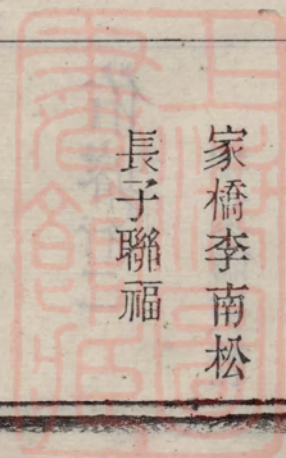 家橋李南松
長子聯福